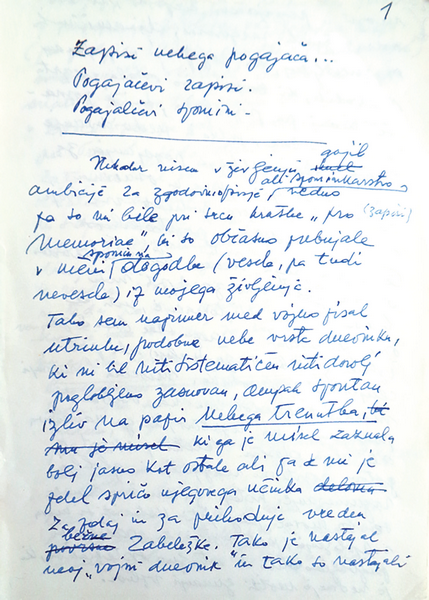 1
Zapisi nekega pogajača...
Pogajačevi zapisi.
Pogajalčevi spomini -
Nikdar nisem v življenju gojil
ambicije za zgodovinopisje ali spominkarstvo, vedno
pa so mi bile pri srcu kratke „pro (zapisi)
memoriae", ki so občasno prebujale
v meni spomin na dogodke (vesele, pa tudi
nevesele) iz mojega življenja.
Tako sem naprimer med vojno pisal
utrinke, podobne neke vrste dnevniku,
ki ni bil niti sistematičen niti dovolj
poglobljeno zasnovan, ampak spontan
izliv na papir nekega trenutka,
ki ga je misel zaznala
bolj jasno kot ostale ali pa se mi je
zdel spričo njegovega učinka
za zdaj in za prihodnje vreden
bežne zabeležke. Tako je nastajal
moj „vojni dnevnik" in tako so nastajali